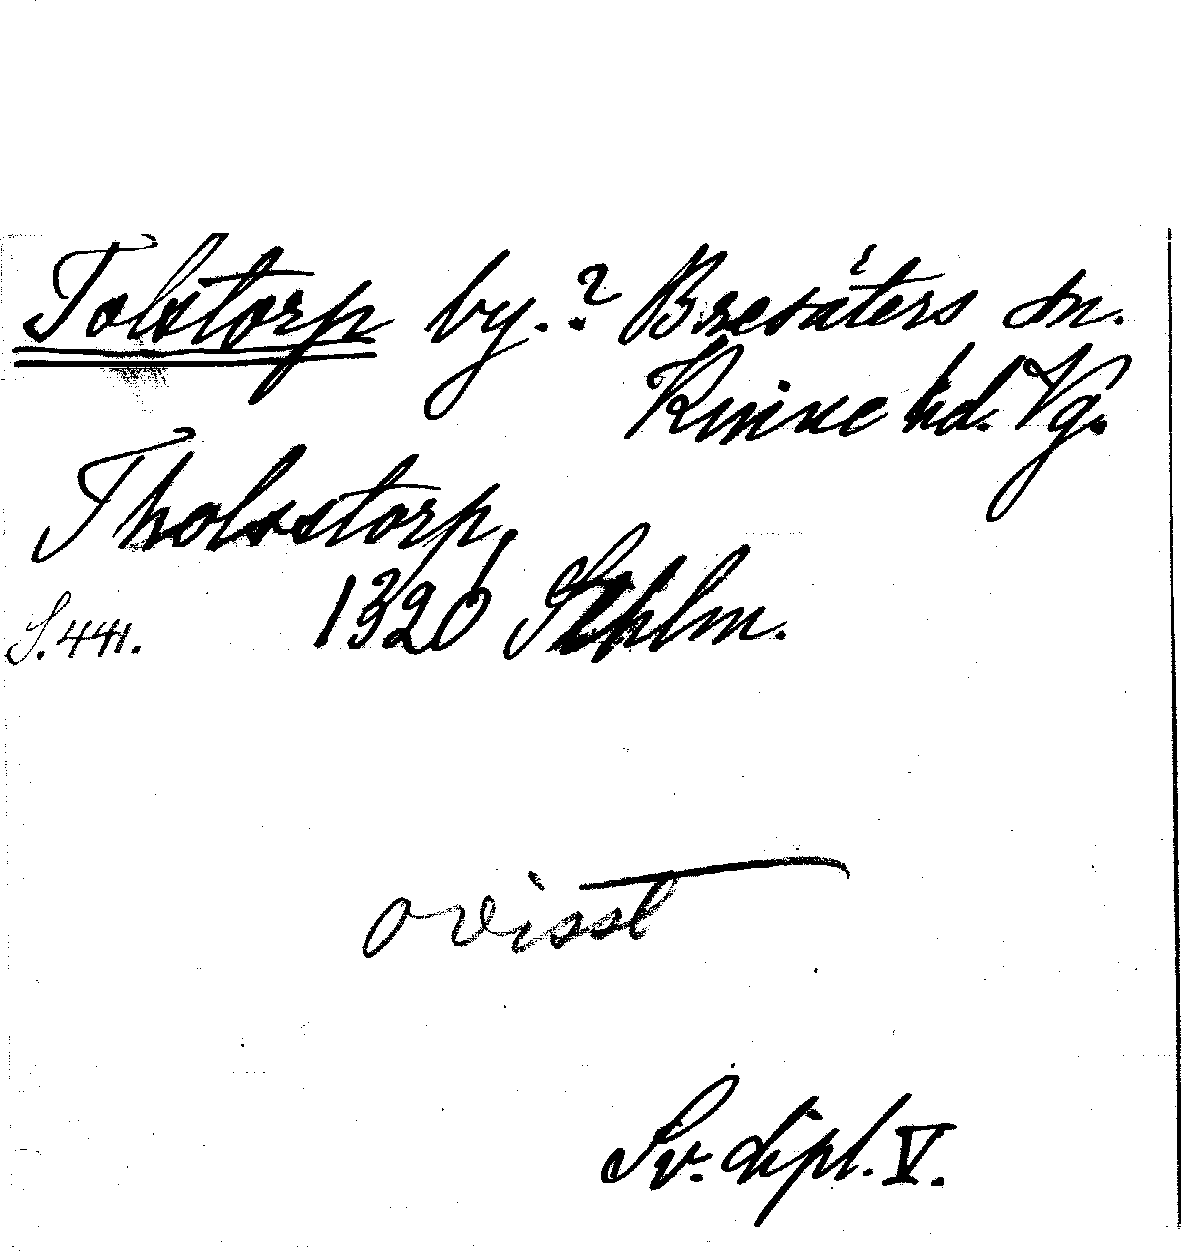 Tolstorp by.? Bresäters sn.
Kinne hd. Vg.
Tholsstorp,
S. 441. 1320 Sthlm.
ovisst
Sv. dipl. V.